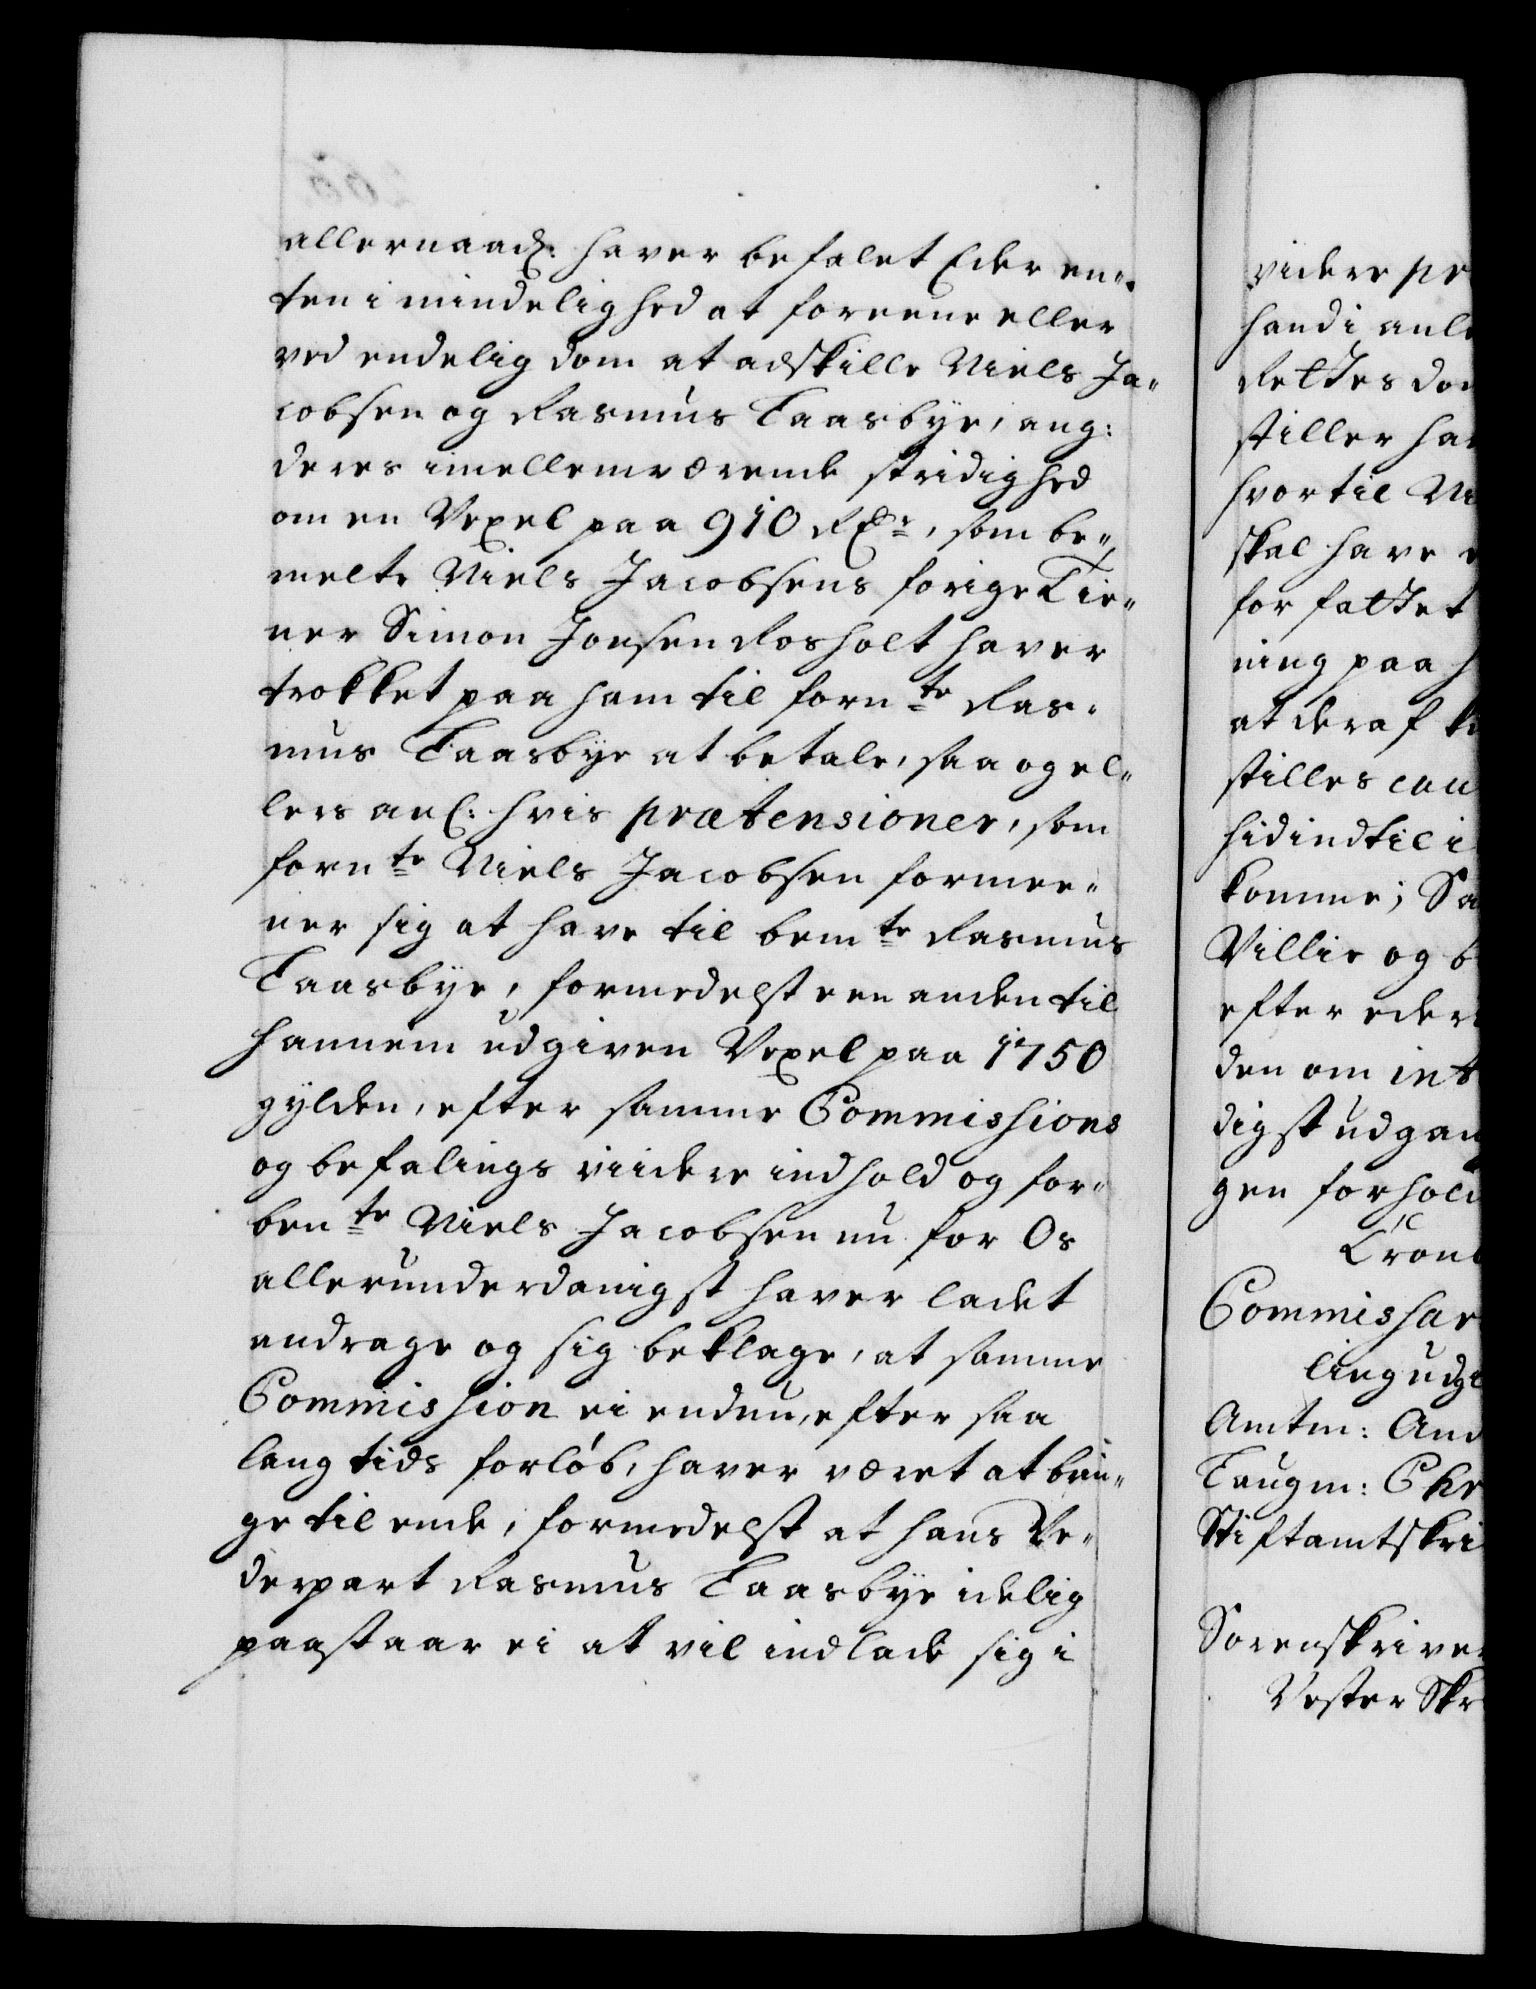 allernaad: haver befalet Eder en-
ten i mindelighed at foreene eller
ved endelig dom at adskille Niels Ja-
cobsen og Rasmus Faasbÿe, ang:
deres imellemværende stridighed
om en Vexel paa 910 Rdr, som be-
melte Niels Jacobsens forige Tie-
ner Simon Jonsen Rosholt haver
trokket paa ham til fornte Ras-
mus Faasbÿe at betale, saa og el-
lers anl: hvis prætensioner, som
fornte Niels Jacobsen formee-
ner sig at have til bemte Rasmus
Faasbÿe, formedelst een anden til
hannem udgiven Vexel paa 1750
gylden, efter samme Commissions
og befalings viidere indhold og for-
bente Niels Jacobsen nu for Os
allerunderdanigst haver ladet
andrage og sig beklage, at samme
Commission ei endnu, efter saa
lang tids forløb, haver været at brin-
ge til ende, formedelst at hans Ve-
derpart Rasmus Faasbÿe idelig
paastaar ei at vil indlade sig i
videre pr
hand i anl
Rettes do
stiller ha
hvortil Ni
skal have
forfattet
ning paa h
at deraf k
stilles cau
hidindtil i
komme; Sa
Villie og b
efter eder
den om int
digst udgan
gen forhold
Cronb
Commissar
ling udgi
Amtm: And
Laugm: Chr
Stiftamtskri
Sorenskriver
Vester Skr